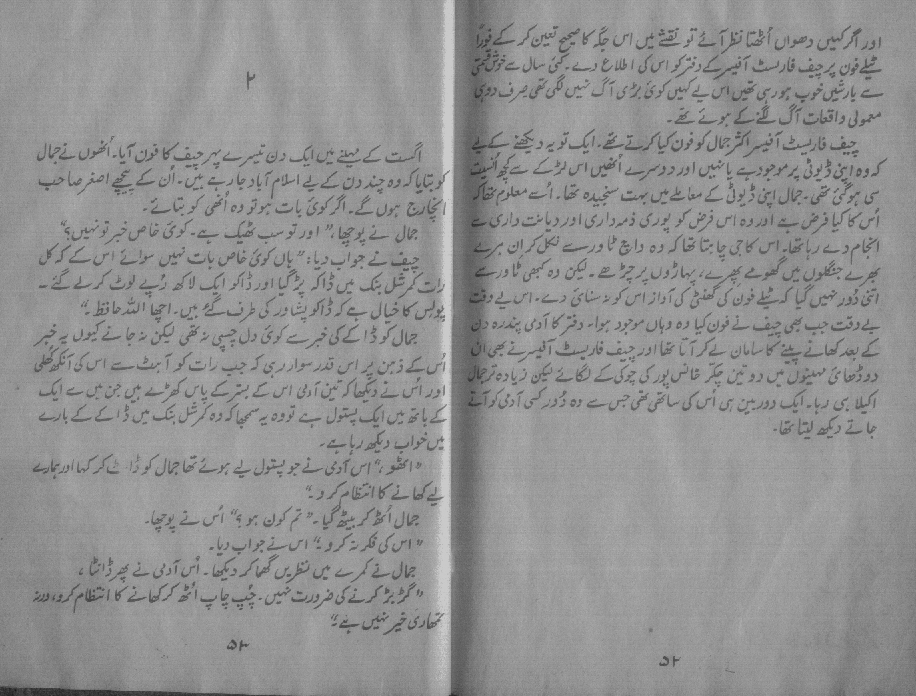 اور اگر کہیں دھواں اُٹھتا نظر آئے تو نقشے میں اس جگہ کا صحیح تعین کر کے فوراً
ٹیلے فون پر چیف فارسٹ آفیسر کے دفتر کو اس کی اطلاع دے۔ کئی سال سے خوش قسمتی
سے بارشیں خوب ہو رہی تھیں اس لیے کہیں کوئی بڑی آگ نہیں لگی تھی صرف دو ہی
معمولی واقعات آگ لگنے کے ہوئے تھے۔
چیف فارسٹ آفیسر اکثر جمال کو فون کیا کرتے تھے۔ ایک تو یہ دیکھنے کے لیے
کہ وہ اپنی ڈیوٹی پر موجود ہے یا نہیں اور دوسرے اُنھیں اس لڑکے سے کچھ اُنسیت
سی ہو گئی تھی۔ جمال اپنی ڈیوٹی کے معاملے میں بہت سنجیدہ تھا۔ اُسے معلوم تھا کہ
اُس کا کیا فرض ہے اور وہ اس فرض کو پوری ذمہ داری اور دیانت داری سے
انجام دے رہا تھا۔ اس کا جی چاہتا تھا کہ وہ واچ ٹاور سے نکل کر ان ہرے
بھرے جنگلوں میں گھومے پھرے، پہاڑوں پر چڑھے۔ لیکن وہ کبھی ٹاور سے
اتنی دُور نہیں گیا کہ ٹیلے فون کی گھنٹی کی آواز اس کو نہ سنائی دے۔ اس لیے وقت
بے وقت جب بھی چیف نے فون کیا وہ وہاں موجود ہوا۔ دفتر کا آدمی پندرہ دن
کے بعد کھانے پینے کا سامان لے کر آتا تھا اور چیف فاریسٹ آفیسر نے بھی ان
دو ڈھائی مہینوں میں دو تین چکر خانس پور کی چوکی کے لگائے لیکن زیادہ تر جمال
اکیلا ہی رہا۔ ایک دوربین ہی اس کی ساتھی تھی جس سے وہ دُور کسی آدمی کو آتے
جاتے دیکھ لیتا تھا۔
۵۲
۲
اگست کے مہینے میں ایک دن تیسرے پہر چیف کا فون آیا۔ اُنھوں نے جمال
کو بتایا کہ وہ چند دن کے لیے اسلام آباد جا رہے ہیں۔ اُن کے پیچھے اصغر صاحب
انچارج ہوں گے۔ اگر کوئی بات ہو تو وہ اُنھی کو بتائے۔
جمال نے پوچھا، "اور تو سب ٹھیک ہے۔ کوئی خاص خبر تو نہیں؟"
چیف نے جواب دیا: "ہاں کوئی خاص بات نہیں سوائے اس کے کہ کل
رات کمرشل بنک میں ڈاکہ پڑ گیا اور ڈاکو ایک لاکھ رُپے لوٹ کر لے گئے۔
پولیس کا خیال ہے کہ ڈاکو پشاور کی طرف گئے ہیں۔ اچھا اللہ حافظ۔"
جمال کو ڈاکے کی خبر سے کوئی دل چسپی نہ تھی لیکن نہ جانے کیوں یہ خبر
اُس کے ذہن پر اس قدر سوار رہی کہ جب رات کو آہٹ سے اس کی آنکھ کھلی
اور اُس نے دیکھا کہ تین آدمی اس کے بستر کے پاس کھڑے ہیں جن میں سے ایک
کے ہاتھ میں ایک پستول ہے تو وہ یہ سمجھا کہ وہ کمرشل بنک میں ڈاکے کے بارے
میں خواب دیکھ رہا ہے۔
"اٹھو،" اس آدمی نے جو پستول لیے ہوئے تھا جمال کو ڈانٹ کر کہا اور ہمارے
لیے کھانے کا انتظام کرو۔"
جمال اُٹھ کر بیٹھ گیا۔ "تم کون ہو؟" اُس نے پوچھا۔
"اس کی فکر نہ کرو۔" اس نے جواب دیا۔
جمال نے کمرے میں نظریں گھما کر دیکھا۔ اُس آدمی نے پھر ڈانٹا،
"گڑبڑ کرنے کی ضرورت نہیں۔ چُپ چاپ اُٹھ کر کھانے کا انتظام کرو، ورنہ
تمھاری خیر نہیں ہے۔"
۵۳